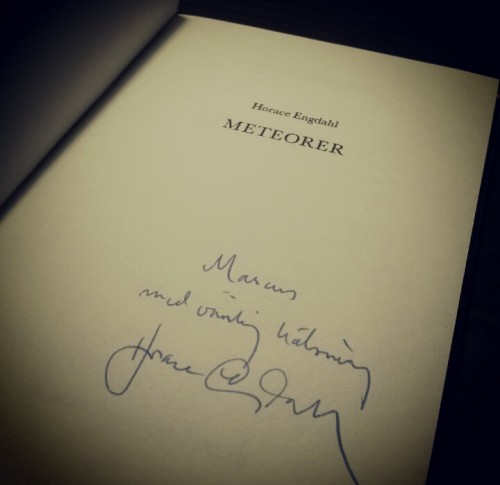 Horace Engdahl
METEORER
Marcus
med vänlig hälsning
Horace Engdahl